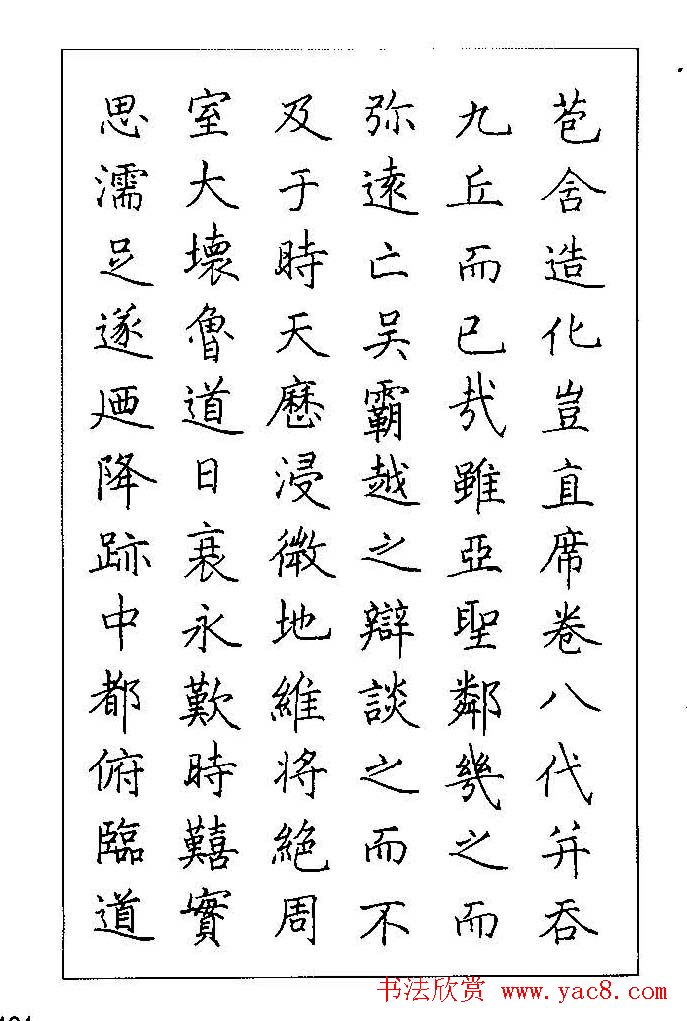 苞含造化豈直席卷八代并吞
九丘而已哉雖亞聖鄰幾之而
弥遠亡吴霸越之辯談之而不
及于時天歷浸微地維将絶周
室大壞魯道日衰永歎時囏實
思濡足遂迺降跡中都俯臨道
书法欣赏 www.yac8.com